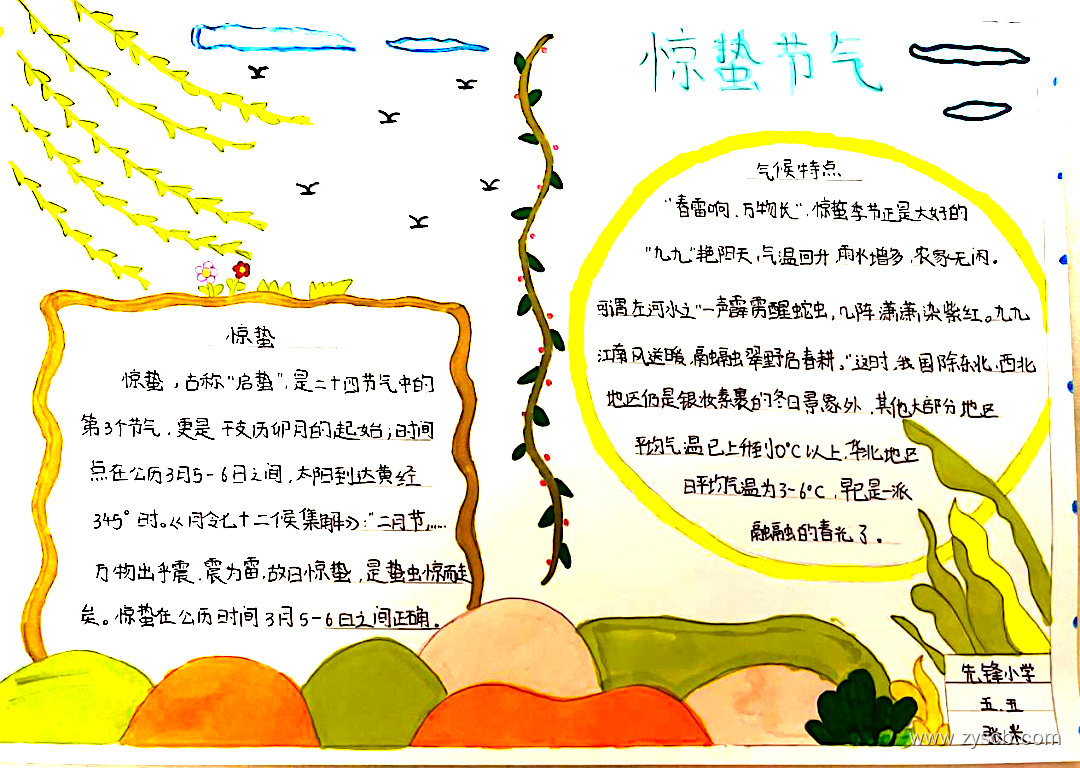 惊蛰节气
惊蛰
惊蛰，古称“启蛰”，是二十四节气中的
第3个节气，更是干支历卯月的起始；时间
点在公历3月5-6日之间，太阳到达黄经
345°时。《月令七十二候集解》：“二月节，……
万物出乎震，震为雷，故曰惊蛰，是蛰虫惊而走
矣。惊蛰在公历时间3月5-6日之间正确。
气候特点
“春雷响、万物长”，惊蛰季节正是大好的
“九九”艳阳天，气温回升，雨水增多，农家无闲。
可谓左河水之“一声霹雳醒蛇虫，几阵潇潇染紫红。九九
江南风送暖，融融翠野启春耕。”这时，我国除东北、西北
地区仍是银妆素裹的冬日景象外，其他大部分地区
平均气温已上升到0°C以上，华北地区
日平均气温为3-6°C，早已是一派
融融的春光了。
先锋小学
五.五
www.zyscb.com